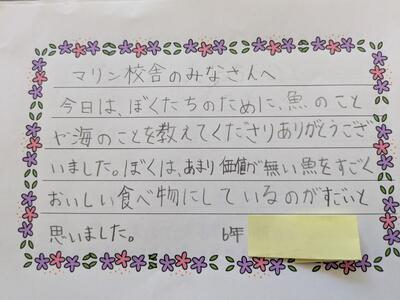 マリン校舎のみなさんへ
今日は、ぼくたちのために、魚のこと
や海のことを教えてくださりありがとうござ
いました。ぼくは、あまり価値が無い魚をすごく
おいしい食べ物にしているのがすごいと
思いました。 6年